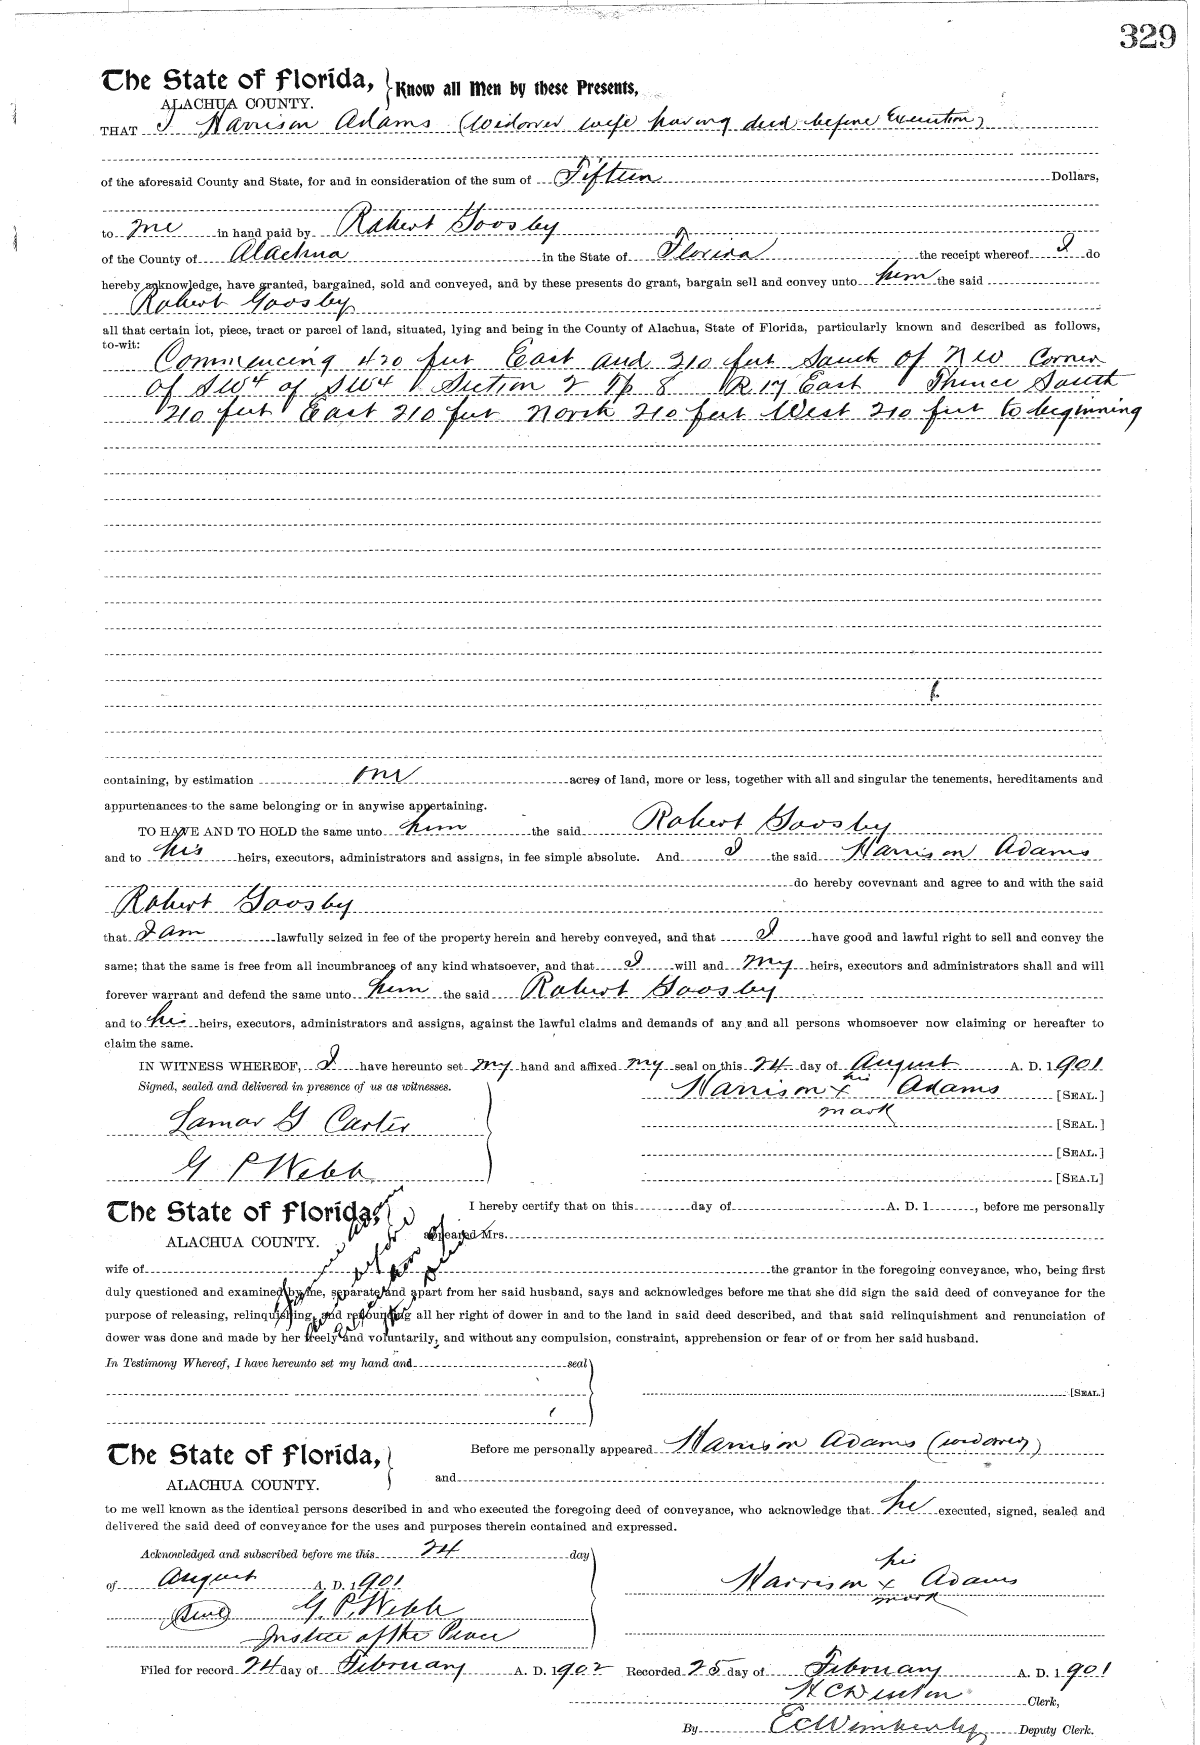 329
The State of Florida, Know all Men by these Presents,
ALACHUA COUNTY.
THAT I Harrison Adams (widower wife having died before Execution)
of the aforesaid County and State, for and in consideration of the sum of Fifteen Dollars,
to me in hand paid by Robert Goosby
of the County of Alachua in the State of Florida the receipt whereof I do
hereby acknowledge, have granted, bargained, sold and conveyed, and by these presents do grant, bargain sell and convey unto him the said
Robert Goosby
all that certain lot, piece, tract or parcel of land, situated, lying and being in the County of Alachua, State of Florida, particularly known and described as follows,
to-wit:
Commencing 420 feet East and 210 feet South of NW Corner
of SW4 of SW4 Section 2 Tp 8 R 17 East Thence South
210 feet East 210 feet North 210 feet West 210 feet to beginning
containing, by estimation one acres of land, more or less, together with all and singular the tenements, hereditaments and
appurtenances to the same belonging or in anywise appertaining.
TO HAVE AND TO HOLD the same unto him the said Robert Goosby
and to his heirs, executors, administrators and assigns, in fee simple absolute. And I the said Harrison Adams
do hereby covevnant and agree to and with the said
Robert Goosby
that I am lawfully seized in fee of the property herein and hereby conveyed, and that I have good and lawful right to sell and convey the
same; that the same is free from all incumbrances of any kind whatsoever, and that I will and my heirs, executors and administrators shall and will
forever warrant and defend the same unto him the said Robert Goosby
and to his heirs, executors, administrators and assigns, against the lawful claims and demands of any and all persons whomsoever now claiming or hereafter to
claim the same.
IN WITNESS WHEREOF, I have hereunto set my hand and affixed my seal on this 24 day of August A. D. 1901
Signed, sealed and delivered in presence of us as witnesses.
Harrison his x Adams [SEAL.]
mark
Lamar G Carter [SEAL.]
[SEAL.]
G P Webb [SEA.L]
The State of Florida, I hereby certify that on this day of A. D. 1 , before me personally
ALACHUA COUNTY. appeared Mrs.
wife of the grantor in the foregoing conveyance, who, being first
duly questioned and examined by me, separate and apart from her said husband, says and acknowledges before me that she did sign the said deed of conveyance for the
purpose of releasing, relinquishing, and renouncing all her right of dower in and to the land in said deed described, and that said relinquishment and renunciation of
dower was done and made by her freely and voluntarily, and without any compulsion, constraint, apprehension or fear of or from her said husband.
In Testimony Whereof, I have hereunto set my hand and seal
[SEAL.]
The State of Florida, Before me personally appeared Harrison Adams (widower)
ALACHUA COUNTY. and
to me well known as the identical persons described in and who executed the foregoing deed of conveyance, who acknowledge that he executed, signed, sealed and
delivered the said deed of conveyance for the uses and purposes therein contained and expressed.
Acknowledged and subscribed before me this 24 day
of August A. D. 1901
Harrison his x Adams
mark
(Seal) G. P. Webb
Justice of the Peace
Filed for record 24 day of February A. D. 1902 Recorded 25 day of February A. D. 1901
H C Denton Clerk,
By E C Wimberly Deputy Clerk.